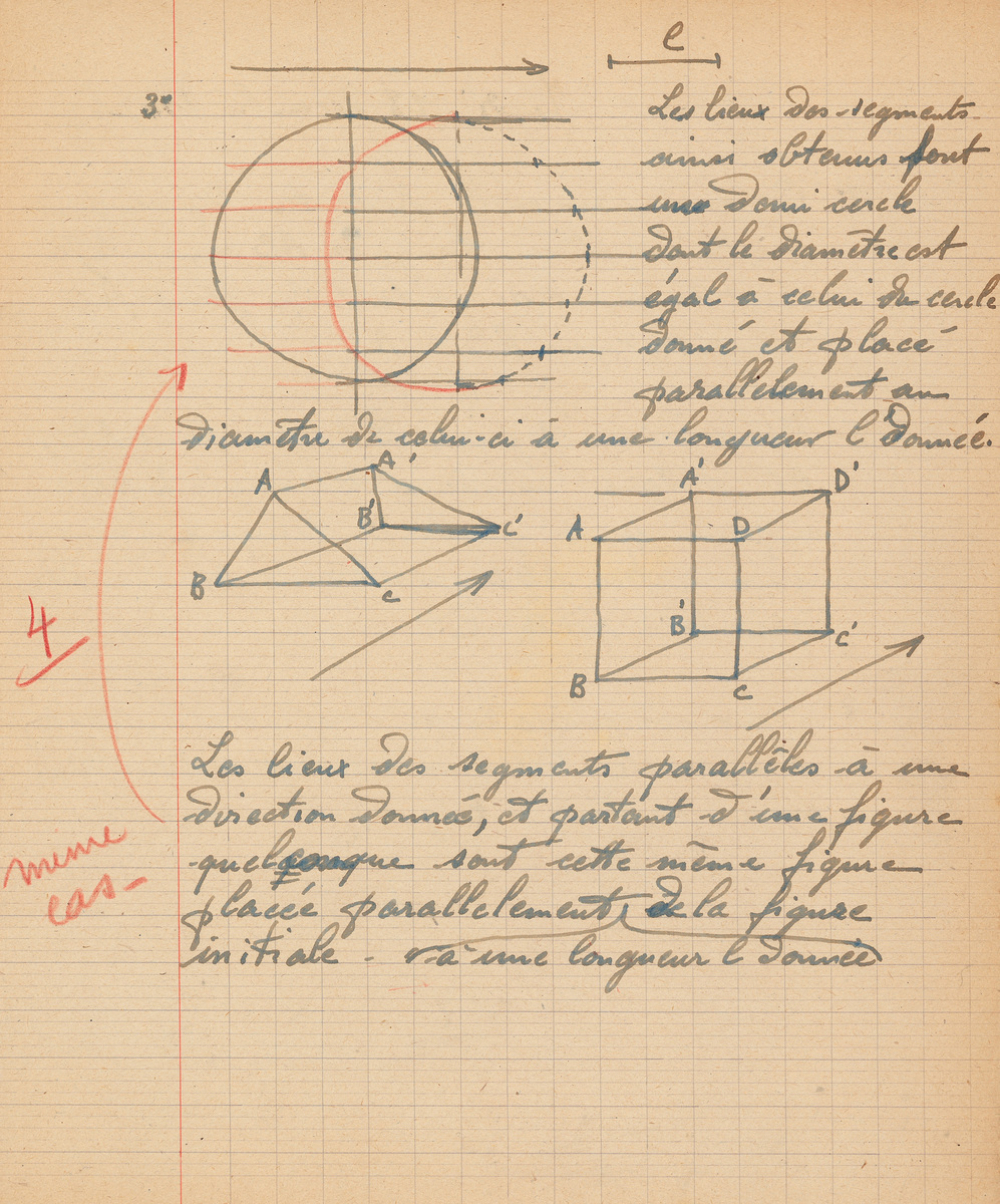 l
3°
Les lieux des segments
ainsi obtenus sont
une demi cercle
dont le diamètre est
égal à celui du cercle
donné et placé
parallèlement au
diamètre de celui-ci à une longueur l donnée.
A A' B' C' B C
A' D' A D B' C' B C
4
Les lieux des segments parallèles à une
direction donnée, et partant d'une figure
quelconque sont cette même figure
même
cas -
placée parallelement de la figure
initiale - à une longueur l donnée